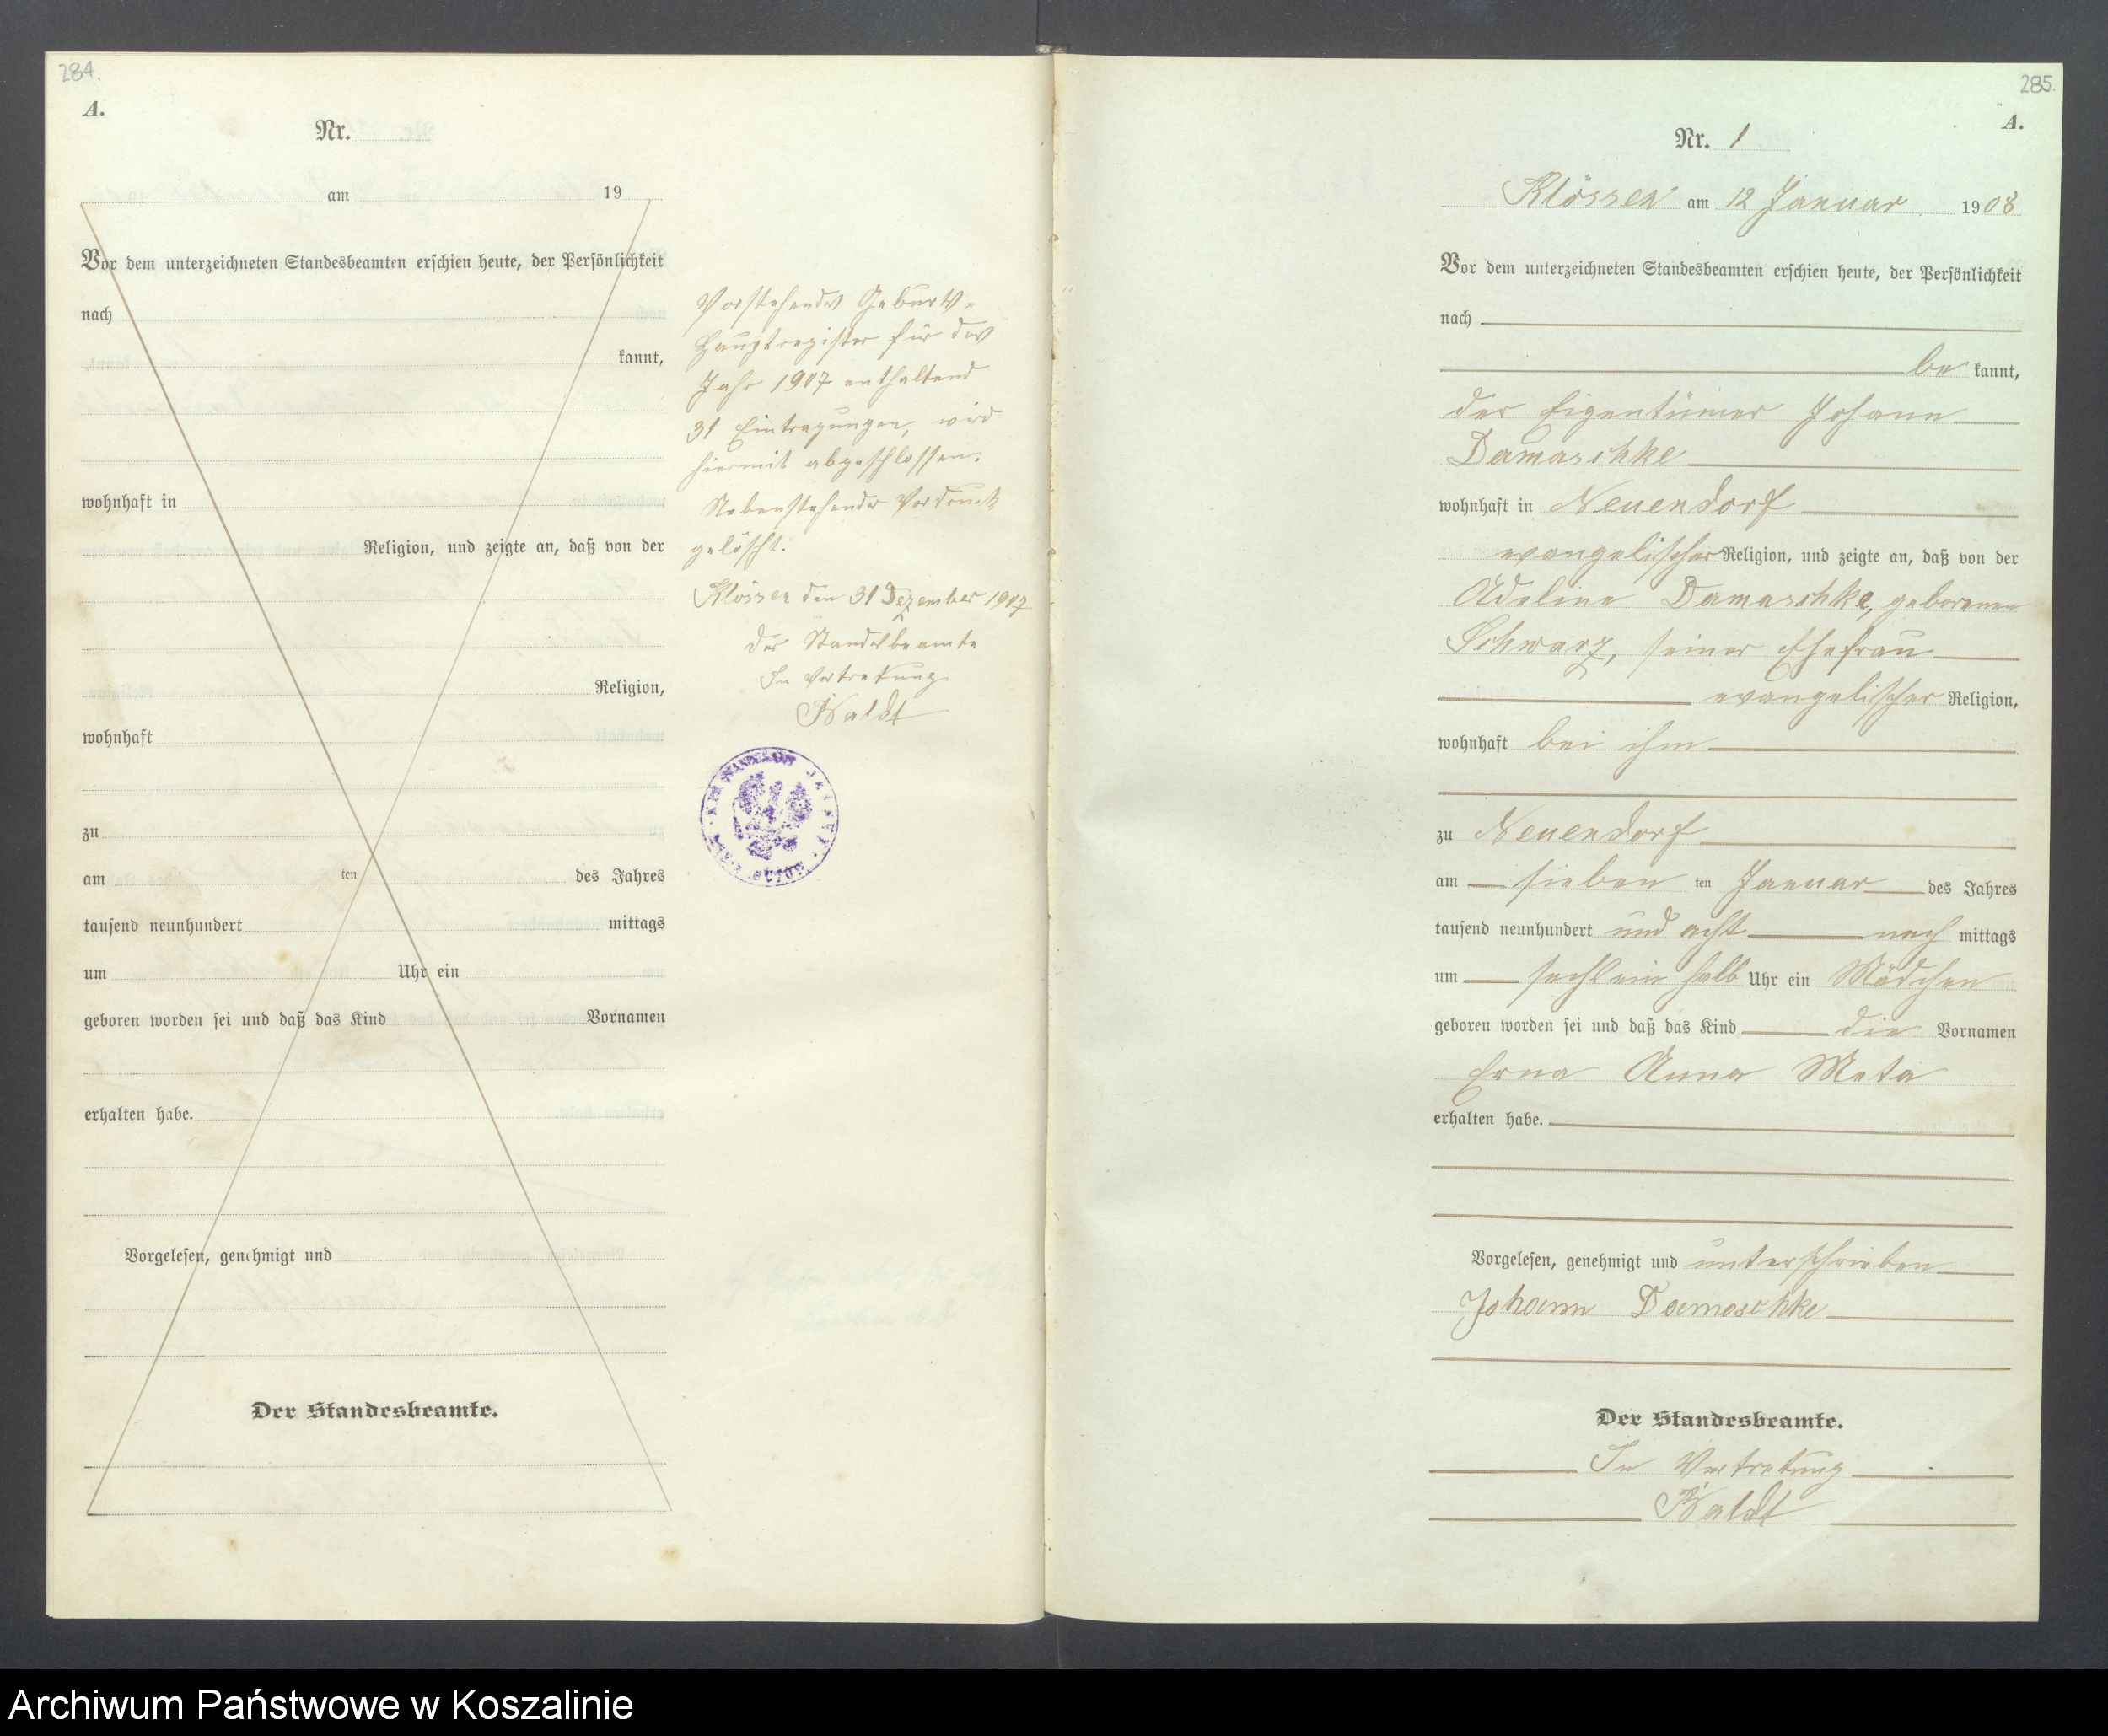 284.
A.
Nr.
am 19
Vor dem unterzeichneten Standesbeamten erschien heute, der Persönlichkeit
nach
kannt,
wohnhaft in
Religion, und zeigte an, daß von der
Religion,
wohnhaft
zu
am ten des Jahres
tausend neunhundert mittags
um Uhr ein
geboren worden sei und daß das Kind Vornamen
erhalten habe.
Vorgelesen, genehmigt und
Der Standesbeamte.
Vorstehendes Geburts-
Hauptregister für das
Jahr 1907 enthaltend
31 Eintragungen, wird
hiermit abgeschlossen.
Nebenstehender Vordruck
gelöscht.
Klössen den 31 Dezember 1907
Der Standesbeamte
In Vertretung
285.
A.
Nr. 1
Klössen am 12 Januar 1908
Vor dem unterzeichneten Standesbeamten erschien heute, der Persönlichkeit
nach
be kannt,
der Eigentümer Johann
Damaschke
wohnhaft in Neuendorf
evangelischer Religion, und zeigte an, daß von der
Adeline Damaschke, geborenen
Schwarz, seiner Ehefrau
evangelischer Religion,
wohnhaft bei ihm
zu Neuendorf
am sieben ten Januar des Jahres
tausend neunhundert und acht nach mittags
um sechs ein halb Uhr ein Mädchen
geboren worden sei und daß das Kind die Vornamen
Erna Anna Meta
erhalten habe.
Vorgelesen, genehmigt und unterschrieben
Johann Damaschke
Der Standesbeamte.
In Vertretung
Archiwum Państwowe w Koszalinie